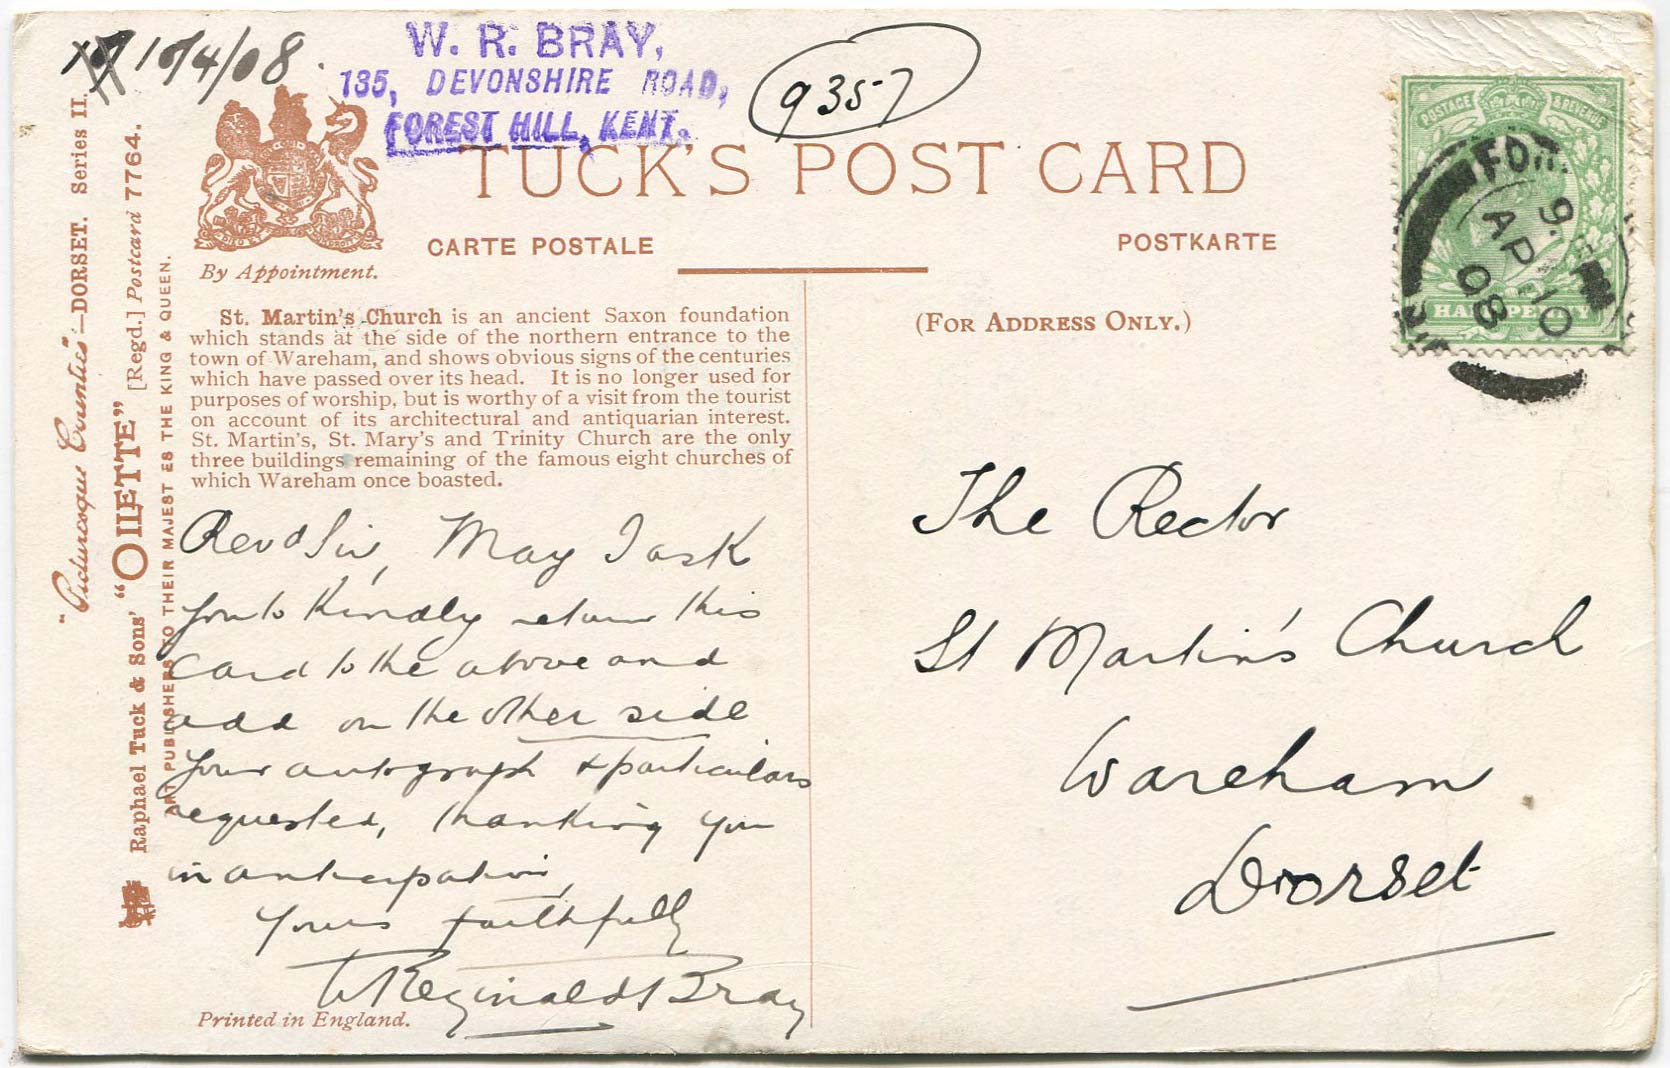 10/4/08.
W. R. BRAY,
135, DEVONSHIRE ROAD,
FOREST HILL, KENT.
9357
TUCK'S POST CARD
CARTE POSTALE
POSTKARTE
By Appointment.
(FOR ADDRESS ONLY.)
POSTAGE & REVENUE
HALFPENNY
FOR
9.
AP 10
08
"Picturesque Counties"—DORSET. Series II.
Raphael Tuck & Sons' "OILETTE" [Regd.] Postcard 7764.
ART PUBLISHERS TO THEIR MAJESTIES THE KING & QUEEN.
St. Martin's Church is an ancient Saxon foundation
which stands at the side of the northern entrance to the
town of Wareham, and shows obvious signs of the centuries
which have passed over its head. It is no longer used for
purposes of worship, but is worthy of a visit from the tourist
on account of its architectural and antiquarian interest.
St. Martin's, St. Mary's and Trinity Church are the only
three buildings remaining of the famous eight churches of
which Wareham once boasted.
Revd Sir, May I ask
you to kindly return this
card to the above and
add on the other side
your autograph & particulars
requested, thanking you
in anticipation,
Yours faithfully
W Reginald Bray
Printed in England.
The Rector
St Martin's Church
Wareham
Dorset